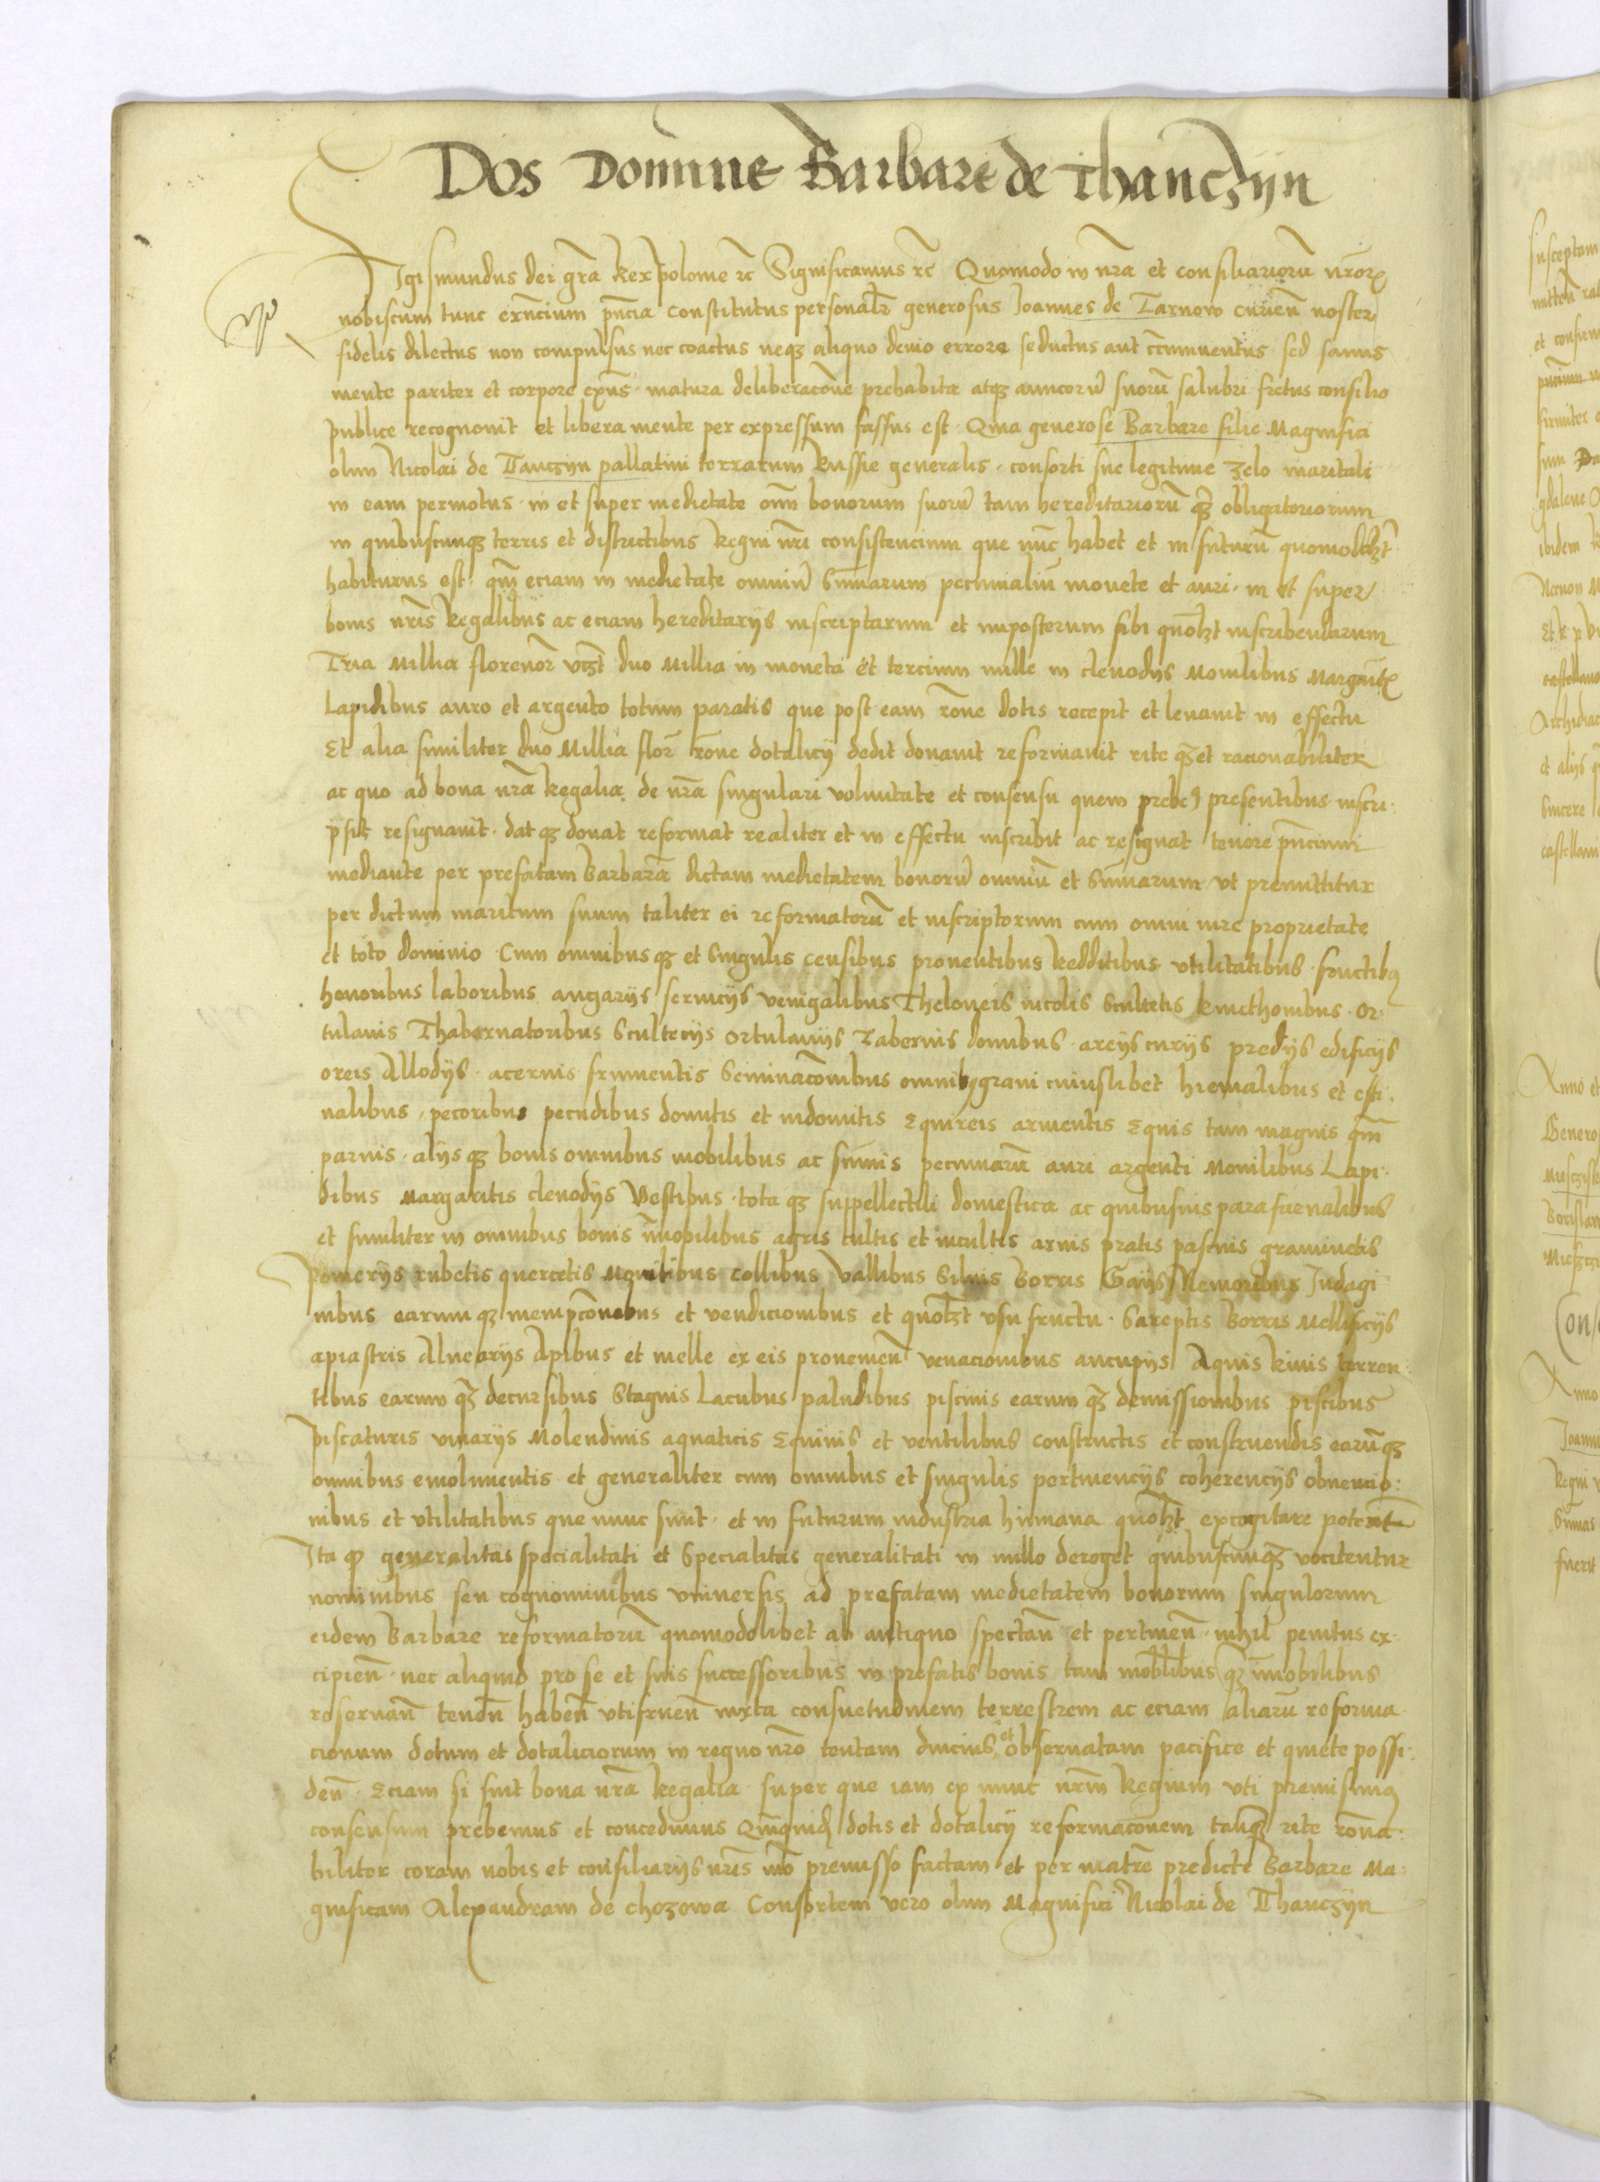 Dos Domine Barbare de Thanczyn
Sigismundus dei grã Rex polonie rc Significamus rc Quomodo in nrã et consiliariorũ nrõrꝫ
nobiscum tunc exñcium pñcia constitutus personalr̃ generosus Joannes de Tarnow curieñ noster
fidelis dilectus non compulsus nec coactus neqꝫ aliquo devio errore seductus aut circumuentus sed sanus
mente pariter et corpore exñs. matura deliberacõne prehabita atqꝫ amicorũ suorũ salubri fretus consilio
publice recognovit et libera mente per expressum fassus est. Quia generose Barbare filie Magnifici
olim Nicolai de Tanczyn pallatini terrarum Russie generalis. consorti sue legitime zelo maritali
in eam permotus. in et super medietate oĩm bonorum suorũ tam hereditariorũ qꝫ obligatoriorum
in quibuscunqꝫ terris et districtibus Regni nri consistencium que nũc habet et in futurũ quomolibꝫt
habiturus est. qm̃ eciam in medietate omniũ Sum̃arum pecunialiũ monete et auri. in et super
bonis nris Regalibus ac eciam hereditarijs inscriptarum et imposterum sibi quolꝫt inscribendarum
Tria Millia florenor̃ vꝫt duo Millia in moneta et tercium mille in clenodijs Monilibus Margarit̃
Lapidibus auro et argento totum paratis que post eam rõne dotis recepit et levavit in effectu
Et alia similiter duo Millia flor̃ rõne dotalicij dedit donavit reformavit rite qꝫ et racionabiliter
ac quo ad bona nrã Regalia. de nrã singulari voluntate et consensu quem prebeꝫ presentibus inscri:
psit resignavit. dat qꝫ donat reformat realiter et in effectu inscribit ac resignat tenore pñcium
mediante per prefatam Barbarã dictam medietatem bonorũ omniũ et Sum̃arum vt premittitur
per dictum maritum suum taliter ei reformatorũ et inscriptorum cum omni iure proprietate
et toto dominio. Cum omnibus qꝫ et Singulis censibus proventibus Redditibus vtilitatibus. fructibꝫ
honoribus laboribus angarijs servicijs vectigalibus Theloneis incolis Scultetis kmethonibus. Or:
tulanis Thabernatoribus Scultecijs Ortulanijs Tabernis domibus. areijs curijs predijs edificijs
oreis Allodijs. acervis frumentis Seminacõnibus omnibꝫ grani cuiuslibet hiemalibus et esti:
valibus. pecoribus pecudibus domitis et indomitis Equireis armentis Equis tam magnis qm̃
parvis. alijs qꝫ bonis omnibus mobilibus ac sum̃is pecuniarũ auri argenti Monilibus Lapi.
dibus Margaritis clenodijs Vestibus. tota qꝫ suppellectili domestica ac quibusvis parafarnalibus
et similiter in omnibus bonis im̃obilibus agris cultis et incultis arvis pratis pascuis graminetis
Pomerijs rubetis quercetis Montibus collibus Vallibus Silvis Borris Gaijs Nemoribus Indagi
nibus earum qꝫ mempcõnibus et vendicionibus et quolꝫt vsu fructu. Sareptis Borris Mellificijs
apiastris Alvearijs Apibus et melle ex eis provenien̄ venacionibus aucupijs Aquis Rivis torren:
tibus earum qꝫ decursibus Stagnis Lacubus paludibus piscinis earum qꝫ demissionibus piscibus
piscaturis vivarijs Molendinis aquaticis Equinis et ventilibus constructis et construendis earũqꝫ
omnibus emolumentis et generaliter cum omnibus et singulis pertinencijs coherencijs obvencio:
nibus et vtilitatibus que nunc sunt. et in futurum industria humana quolꝫt excogitare poterit
Ita qꝫ generalitas specialitati et Specialitas generalitati in nullo deroget quibuscunqꝫ vocitentur
nominibus seu cognominibus vniversis ad prefatam medietatem bonorum singulorum
eidem Barbare reformatorũ quomodolibet ab antiquo spectañ et pertineñ. nihil penitus ex.
cipieñ. nec aliquid pro se et suis successoribus in prefatis bonis tam mobilibus qꝫ im̃obilibus
reservañ teneñ habeñ vtifrueñ iuxta consuetudinem terrestrem ac eciam aliarũ reforma
cionum dotum et dotaliciorum in regno nrõ tentam diucius et observatam pacifice et quiete possi:
deñ. Eciam si sint bona nrã Regalia. super que iam ex nunc nrm̃ Regium vti premisimꝫ
consensum prebemus et concedimus Quiquidꝫ dotis et dotalicij reformacõnem tanqꝫ rite rõna.
biliter coram nobis et consiliarijs nris mõ premisso factam et per matrẽ predicte Barbare Ma:
gnificam Alexandram de Chozowa Consortem vero olim Magnifici Nicolai de Thanczyn